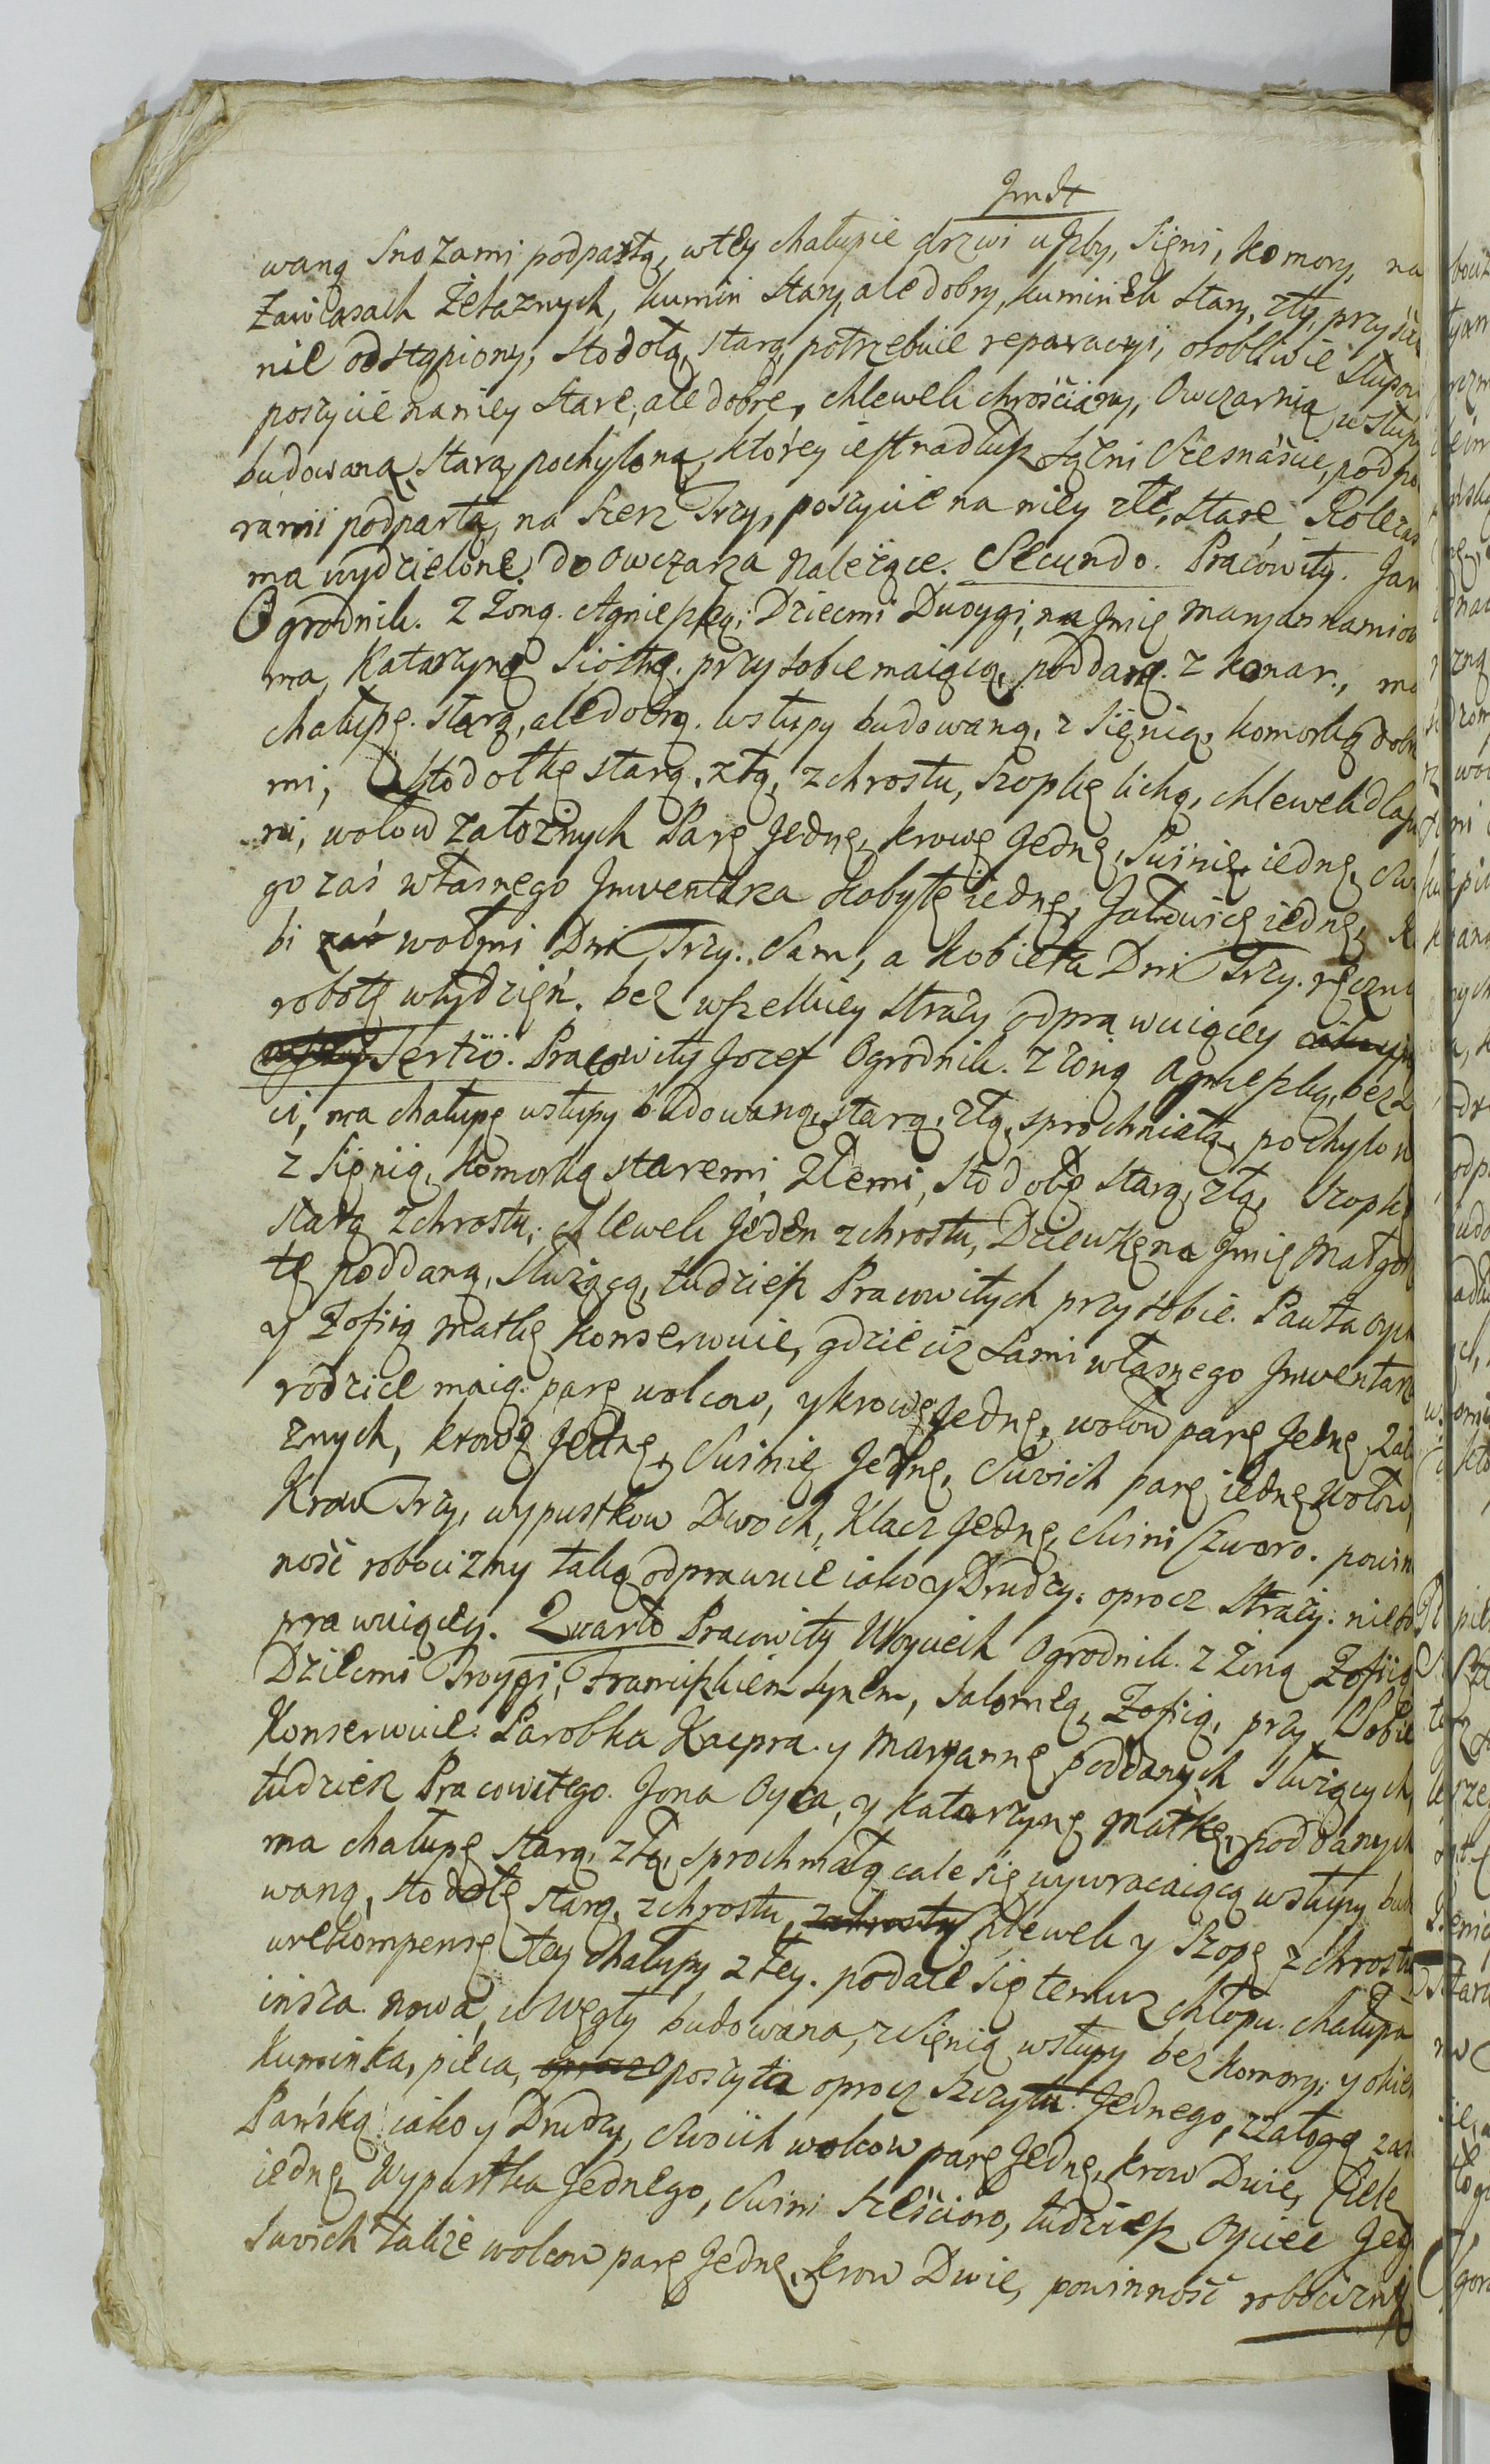 waną Snozami podpartą, w tey chałupie drzwi u Jzby, Sięni, komory, na
Zawiasach Żelaznych, kumin stary, ale dobry, kuminek stary, zły, przy
nie odstąpiony, Stodołą, starą, potrzebuie reparacyi, osobliwie Słupow
poszycie na niey Stare, ale dobre, chlewek chrościany, Owczarnią w słupy
budowaną, Starą, pochyloną, którey iest nadłuż Sążni Szesnaście, podpo
rami podpartą, na Szerz Trzy, poszycie na niey złe, stare,
ma wydzielone do Owczarza należące. Secundo. Pracowity. Jan
Ogrodnik. z Żoną. Agnieszką, Dziecmi Dwoygi, na Jmię Maryannami
ma, Katarzynę Siostrę. przy sobie maiącą, poddaną. z konar., ma
chałupę. starą, ale dobrą. w słupy budowaną, z Sięnią, komorką dobre
mi, Stodołkę starą, złą, z chrostu, Szopkę lichą, chlewek dla
ni, wołow załoznych Parę Jednę, krowę Jednę, Swinię iednę, Swe
go zaś własnego Jnwentarza Kobyłę iednę, Jałowicę iednę, Ro
bi zaś wołmi Dni Trzy. Sam, a Kobieta Dni Trzy. ręczną
robotę w tydzięń. bez wszelkiey straży odprawuiącey
Tertio. Pracowity Jozef Ogrodnik. z żoną Agnieszką, bez
ci, ma chałupę w słupy budowaną, starą, złą, sprochniałą, pochyloną
z Sięnią, komorką staremi, złemi, Stodołę starą, złą, Szopkę
starą z chrostu, chlewek Jeden z chrostu, Dziewkę na Jmię Małgorza
tę poddaną, Służącą, tudziesz Pracowitych przy sobie. Pawła Oyca
y Zofiią Matkę konserwuie, gdzie ciż Sami własnego Jnwentarza
rodzice maią. parę wolcow, y krowę Jednę, wołow parę Jednę Zało
znych, krowę Jednę, Swinię Jednę, Swoich parę iednę wołow,
Krow Trzy, wypustkow Dwoch, Klacz Jednę, Swini Czworo. powin
ność robocizny taką odprawuie iako y Drudzy. oprocz Straży. nie od
prawuiącey. Quarto Pracowity Woyciech Ogrodnik. z Żoną Zofiią
Dziecmi Troygi, Franciszkiem synem, Salomeą, Zofiią, przy Sobie
Konserwuie. Parobka Kacpra. y Maryannę poddanych służących,
tudziesz Pracowitego. Jona Oyca, y Katarzynę Matkę, poddanych
ma chałupę starą, złą, sprochniałą cale się wywracaiącą w słupy budo
waną, stodołę starą, z chrostu, z chrostu Chlewek y Szopę z chrostu
w rekompensę tey chałupy złey. podaie się temuz chłopu. chałupa
insza. nowa, w węgły budowana, z Sięnią w słupy bez komory. y okien
Kuminka, pieca, oprocz poszyta oprocz Szczytu Jednego, Załogę zaś
Pańską iako y Drudzy, Swoich wolcow parę Jednę, krow Dwie, Ciele
iedne, Wypustka Jednego, Swini Sześcioro, tudziesz Oyciec Jego
Swoich także wolcow parę Jednę, krow Dwie, powinność robocizny